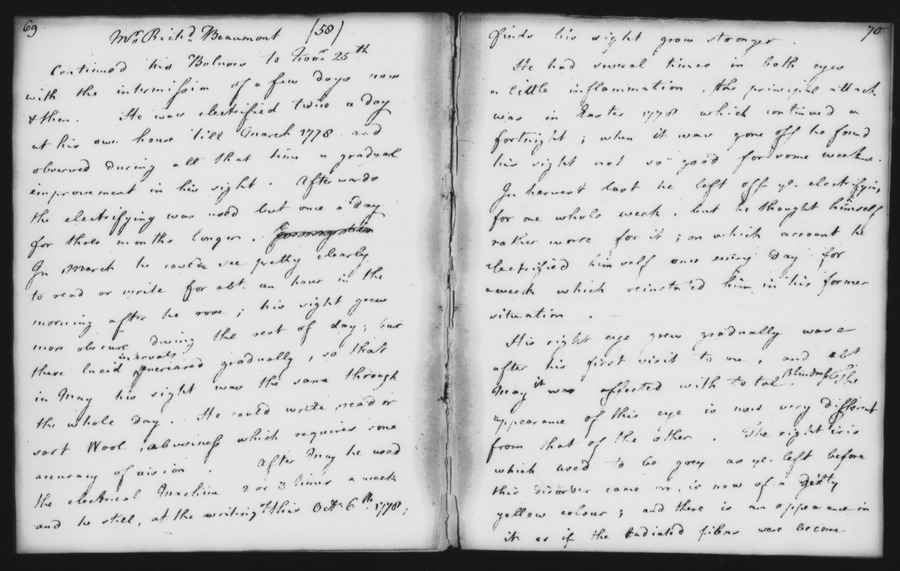 69
Mr. Richd. Beaumont (58)
Continued his Boluses to Novr. 25th
with the intermission of a few days now
& then. He was electrified twice a day
at his own house 'till March 1778 and
observed during all that time a gradual
improvement in his sight. Afterwards
the electrifying was used but once a day
for three months longer.
In March he could see pretty clearly
to read or write for abt. an hour in the
morning after he rose; his sight grew
more obscure during the rest of day; but
these lucid intervals increased gradually, so that
in May his sight was the same through
the whole day. He could write, read or
sort Wool, a business which requires some
accuracy of vision. After May he used
the electrical Machine 2 or 3 times a week
and do still, at the writing of this Octr. 6th. 1778,
70
finds his sight grow stronger.
He had several times in both eyes
a little inflammation, the principal attack
was in Easter 1778 which continued a
fortnight; when it was gone off he found
his sight not so good for some weeks.
In harvest last he left off ye. electrifying
for one whole week, but he thought himself
rather worse for it; on which account he
electrified himself once every day for
a week which reinstated him in his former
situation.
His right eye grew gradually worse
after his first visit to me, and abt
May it was affected with total Blindness. The
appearance of this eye is now very different
from that of the other. The right iris
which used to be grey as ye. left before
this disorder came on, is now of a
yellow colour; and there is an appearance in
it as if the radiated fibres were become